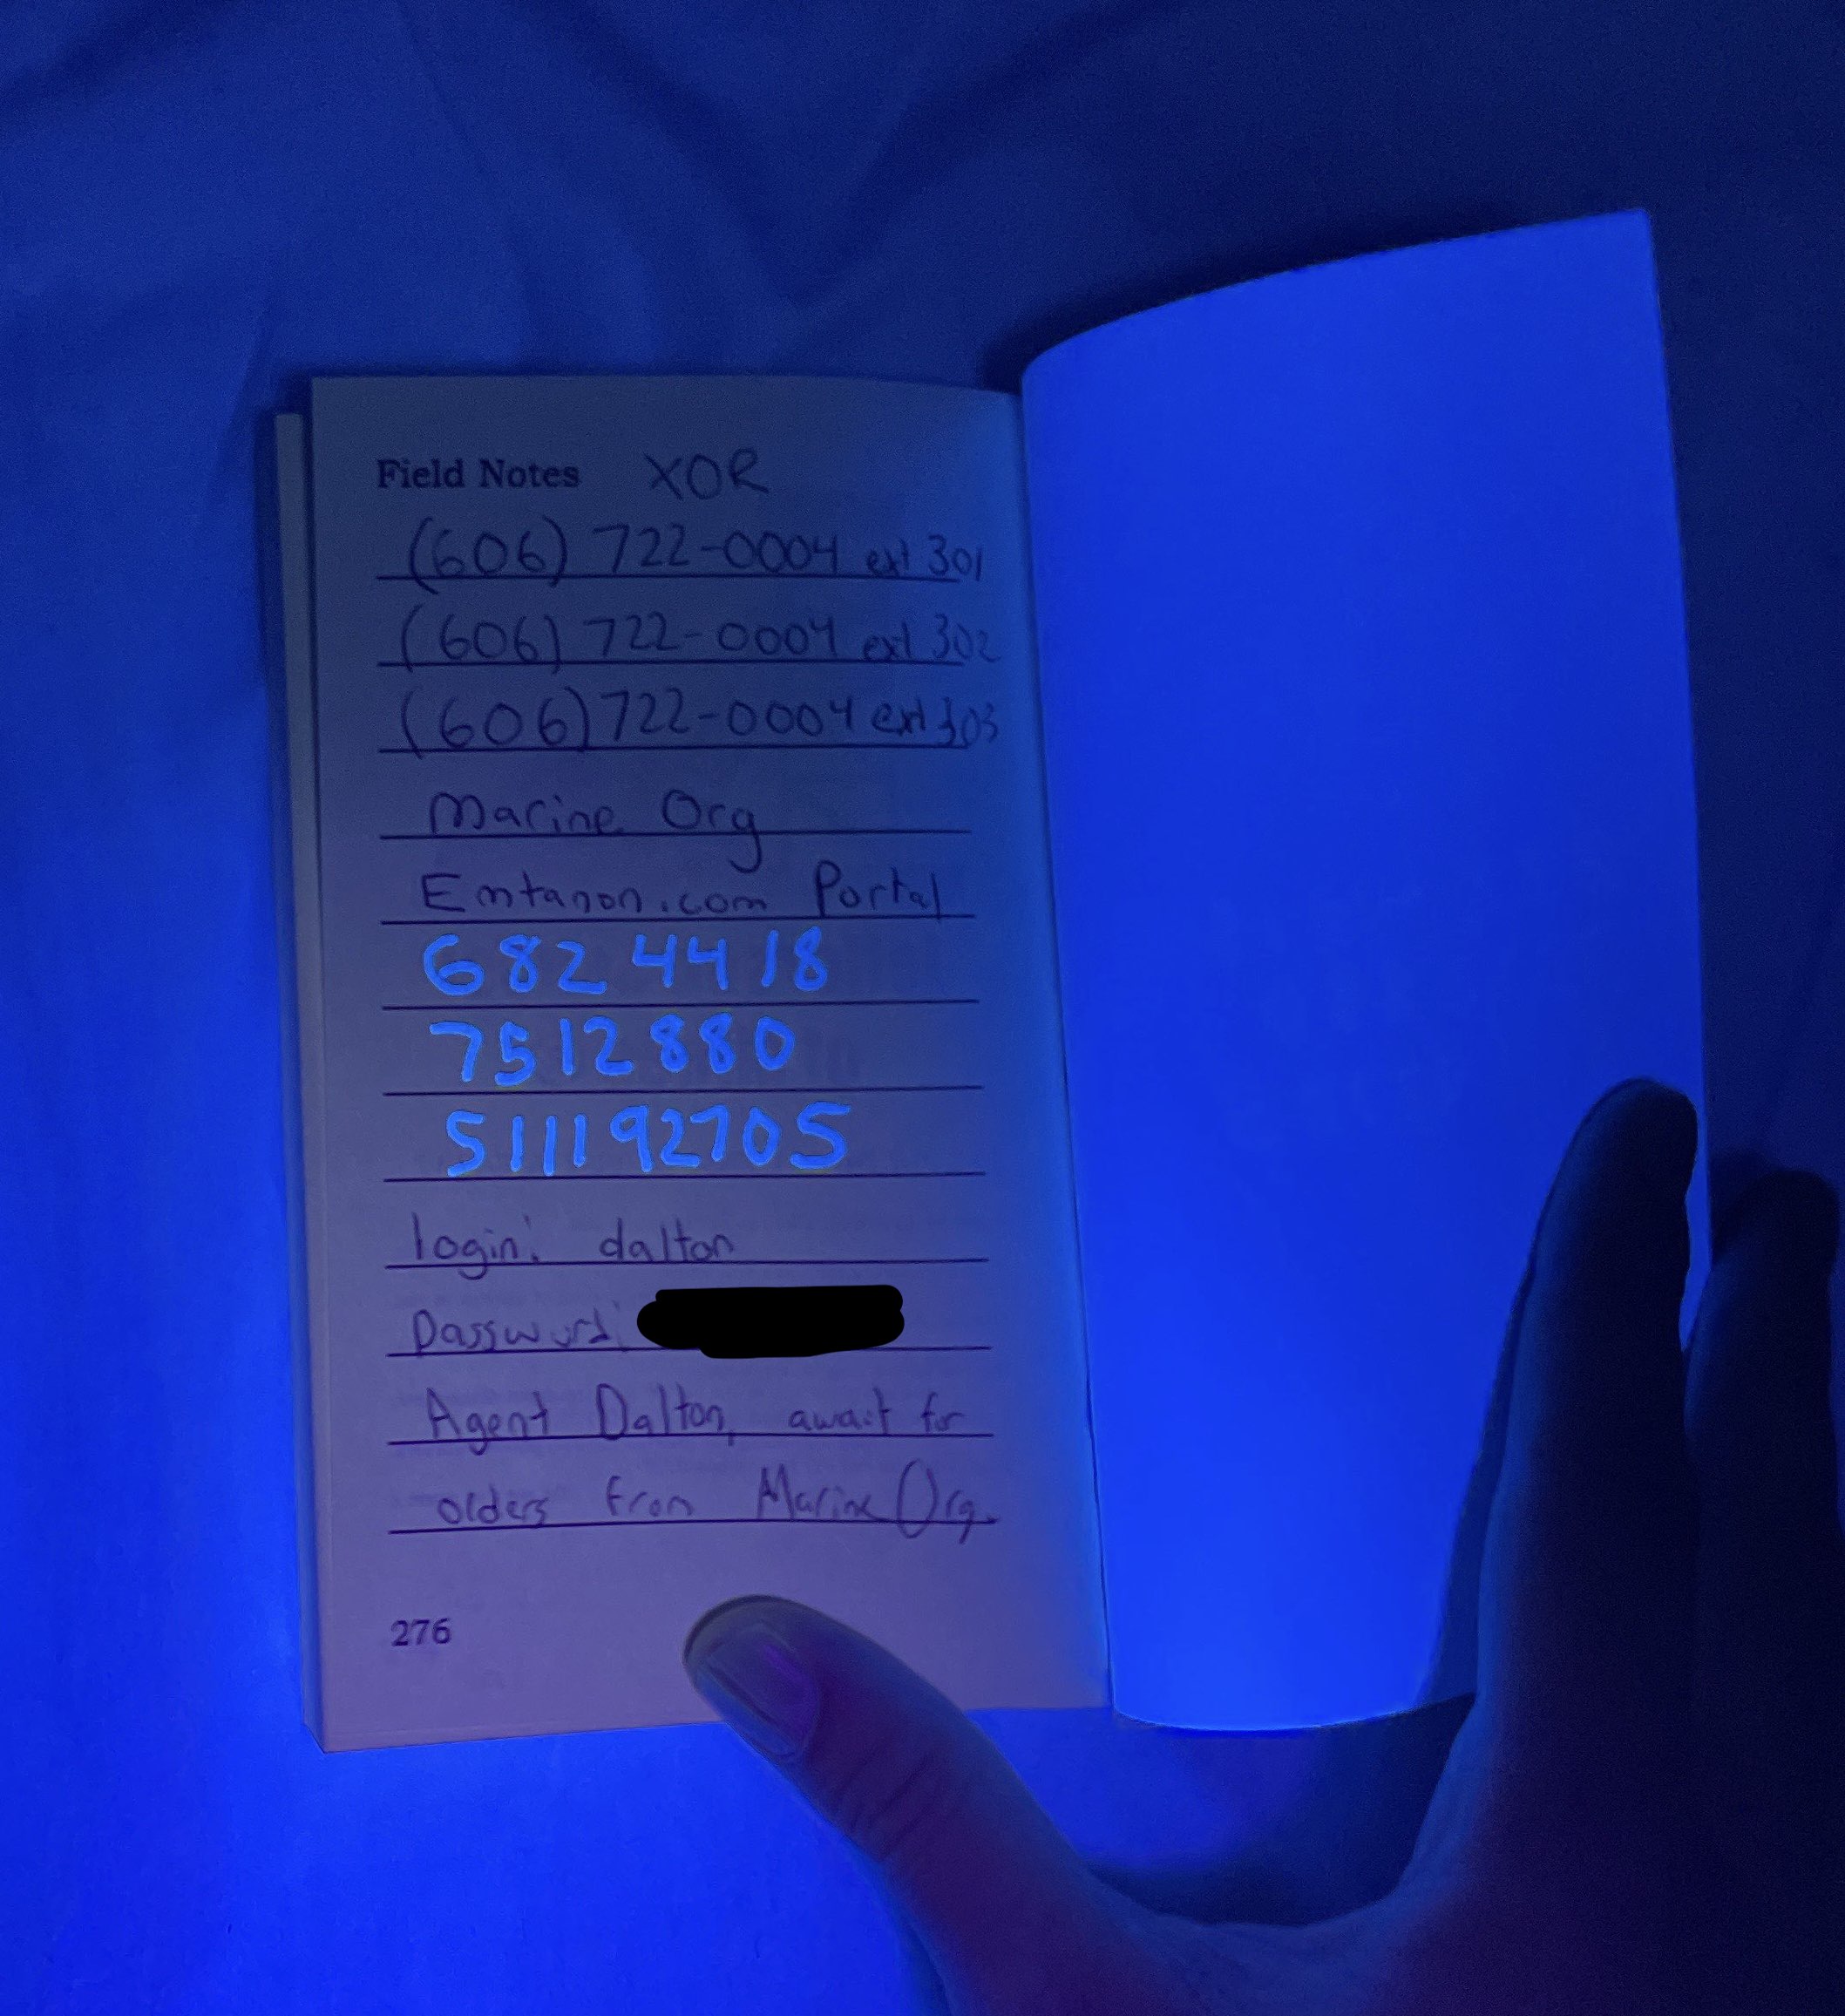 Field Notes XOR
(606) 722-0004 ext 301
(606) 722-0004 ext 302
(606) 722-0004 ext 303
Marine Org
Emtanon.com Portal
682 4418
7512880
511192705
login: dalton
Password:
Agent Dalton, await for
orders from Marine Org.
276